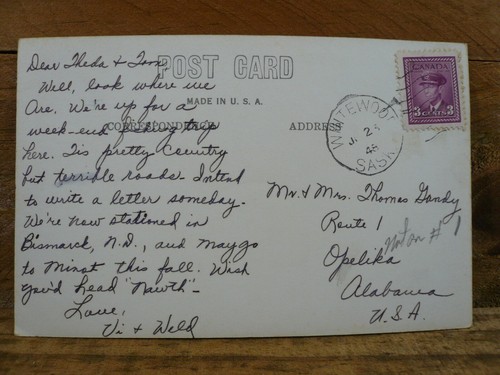 POST CARD
MADE IN U.S.A.
CORRESPONDENCE
ADDRESS
Dear Theda & Tom,
Well, look where we
are. We're up for a
week-end fishing trip
here. Tis pretty country
but terrible roads. Intend
to write a letter someday.
We're now stationed in
Bismarck, N.D., and may go
to Minot this fall. Wish
you'd head "Nawth" -
Love,
Vi & Weld
CANADA
3 CENTS 3
WHITEWOOD
SASK
Mr. & Mrs. Thomas Gandy
Route 1
Opelika
Alabama
U.S.A.
not on # 1